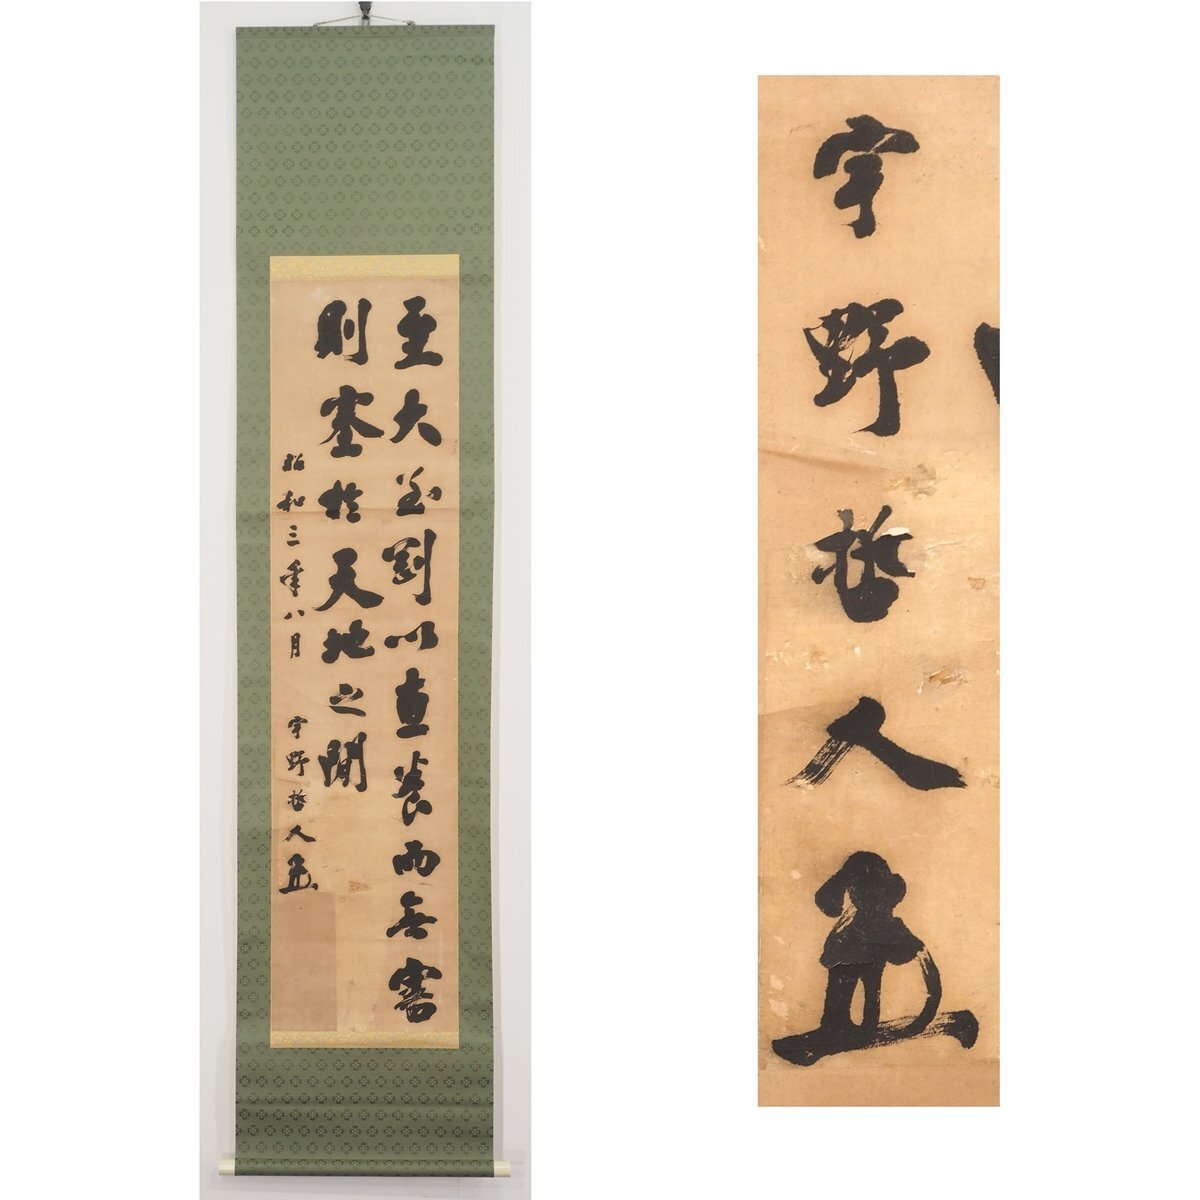 至大至剛以直養而無害
則塞於天地之間
昭和三年八月 宇野哲人
宇野哲人